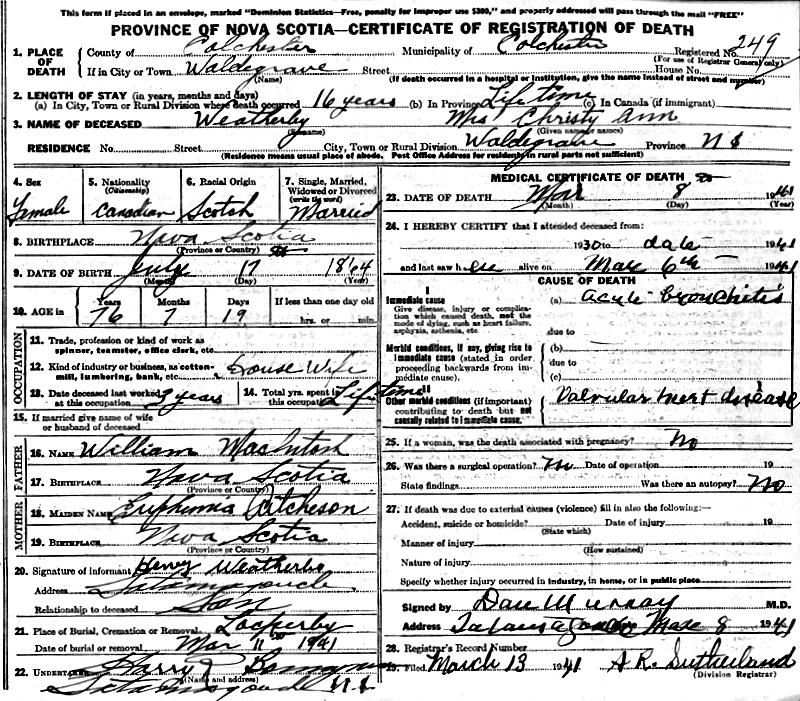 This form if placed in an envelope, marked "Dominion Statistics—Free, penalty for improper use $300," and properly addressed will pass through the mail "FREE"
PROVINCE OF NOVA SCOTIA—CERTIFICATE OF REGISTRATION OF DEATH
1. PLACE OF DEATH County of Colchester Municipality of Colchester Registered No. 249
(For use of Registrar General only)
If in City or Town Waldegrave Street House No.
(Name) (If death occurred in a hospital or institution, give the name instead of street and number)
2. LENGTH OF STAY (in years, months and days)
(a) In City, Town or Rural Division where death occurred 16 years (b) In Province Life time (c) In Canada (if immigrant)
3. NAME OF DECEASED Weatherby Mrs Christy Ann
(Surname) (Given name or names)
RESIDENCE No. Street City, Town or Rural Division Waldegrave Province N S
(Residence means usual place of abode. Post Office Address for residents in rural parts not sufficient)
4. Sex Female
5. Nationality (Citizenship) Canadian
6. Racial Origin Scotch
7. Single, Married, Widowed or Divorced (write the word) Married
8. BIRTHPLACE Nova Scotia
(Province or Country)
9. DATE OF BIRTH July 17 1864
(Month) (Day) (Year)
10. AGE in Years 76 Months 7 Days 19 If less than one day old
hrs. or min.
OCCUPATION
11. Trade, profession or kind of work as spinner, teamster, office clerk, etc.
12. Kind of industry or business, as cotton-mill, lumbering, bank, etc. House Wife
13. Date deceased last worked at this occupation 3 years 14. Total yrs. spent in this occupation Life time
15. If married give name of wife or husband of deceased
FATHER
16. NAME William MacIntosh
17. BIRTHPLACE Nova Scotia
(Province or Country)
MOTHER
18. MAIDEN NAME Euphemia Aitcheson
19. BIRTHPLACE Nova Scotia
(Province or Country)
20. Signature of informant Henry Weatherbe
Address Tatamagouche
Relationship to deceased Son
21. Place of Burial, Cremation or Removal
Date of burial or removal Mar 11 1941
22. UNDERTAKER Harry
(Name and address)
Tatamagouche N.S
MEDICAL CERTIFICATE OF DEATH
23. DATE OF DEATH Mar 8 1941
(Month) (Day) (Year)
24. I HEREBY CERTIFY that I attended deceased from:
1930 to date 1941
and last saw her alive on Mar 6th 1941
CAUSE OF DEATH
I
Immediate cause
Give disease, injury or complication which caused death, not the mode of dying, such as heart failure, asphyxia, asthenia, etc.
(a) acute bronchitis
due to
Morbid conditions, if any, giving rise to immediate cause (stated in order proceeding backwards from immediate cause).
(b)
due to
(c)
II
Other morbid conditions (if important) contributing to death but not causally related to immediate cause.
Valvular heart disease
25. If a woman, was the death associated with pregnancy? No
26. Was there a surgical operation? No Date of operation 19
State findings Was there an autopsy? No
27. If death was due to external causes (violence) fill in also the following:—
Accident, suicide or homicide? Date of injury 19
(State which)
Manner of injury
(How sustained)
Nature of injury
Specify whether injury occurred in industry, in home, or in public place
Signed by Dan Murray M.D.
Address Tatamagouche Mar 8 1941
28. Registrar's Record Number
29. Filed March 13 1941 A R. Sutherland
(Division Registrar)